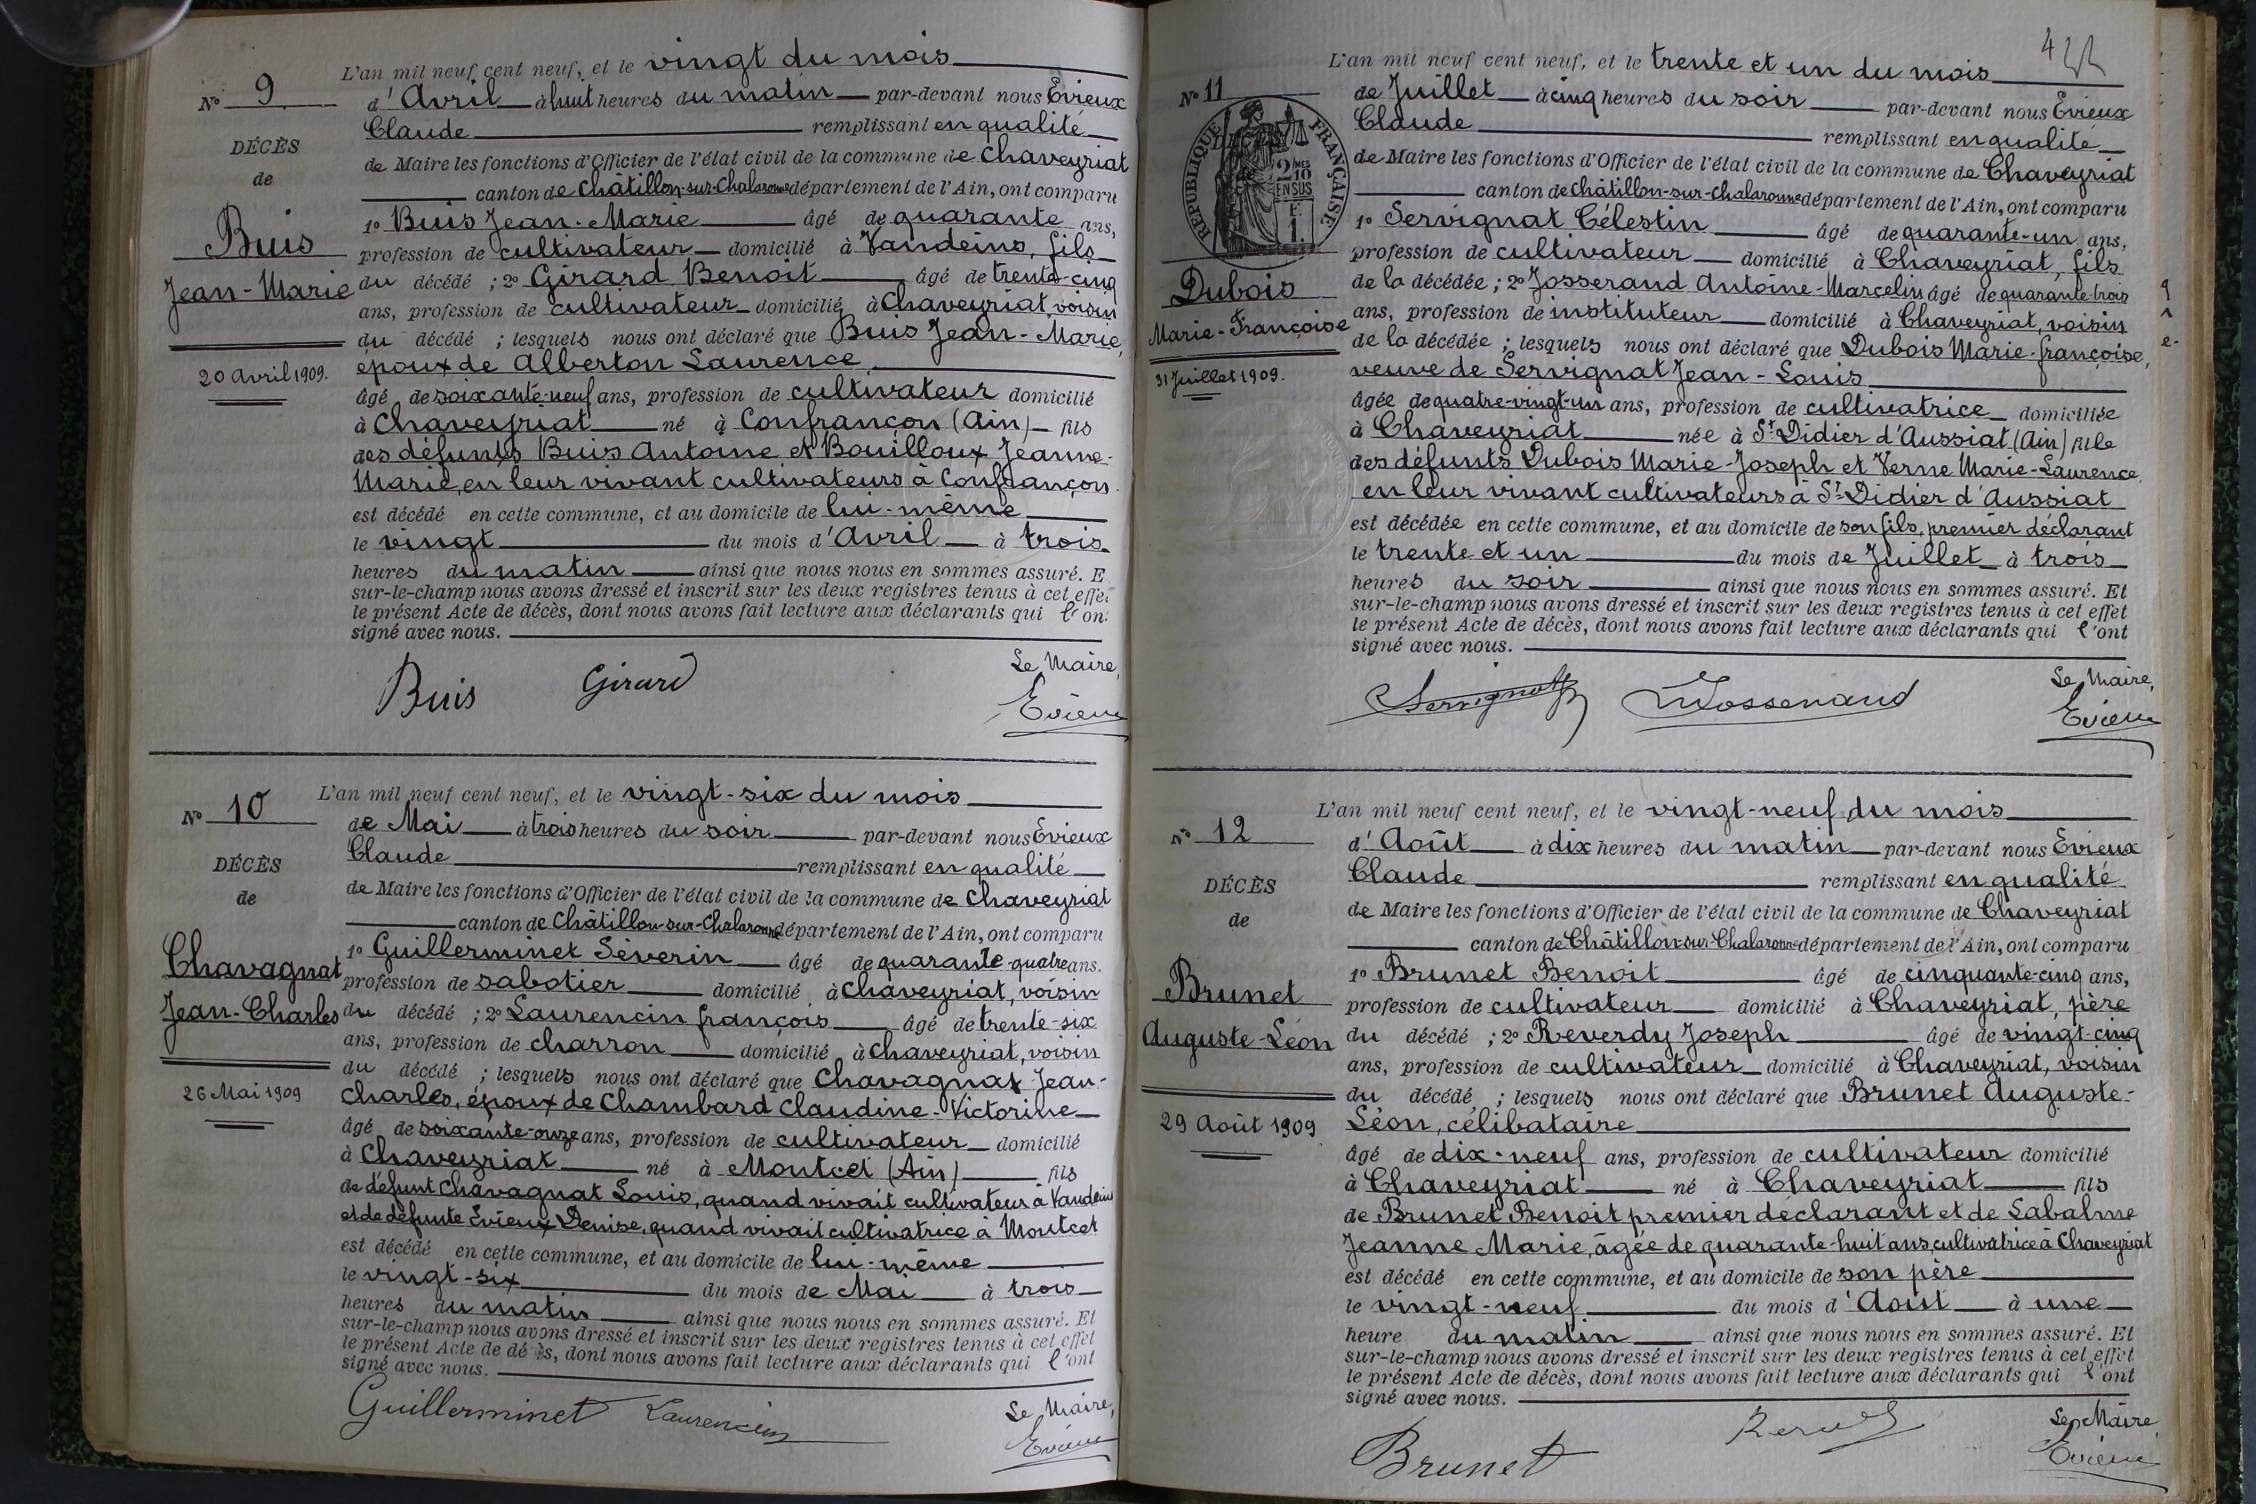 L'an mil neuf cent neuf, et le vingt du mois
N° 9
d'Avril à huit heures du matin par-devant nous Evieux
Claude remplissant en qualité
DÉCÈS
de Maire les fonctions d'Officier de l'état civil de la commune de Chaveyriat
de
canton de Châtillon-sur-Chalaronne département de l'Ain, ont comparu
1° Buis Jean-Marie âgé de quarante ans,
Buis
profession de cultivateur domicilié à Vandeins, fils
Jean-Marie
du décédé ; 2° Girard Benoit âgé de trente-cinq
ans, profession de cultivateur domicilié à Chaveyriat, voisin
du décédé ; lesquels nous ont déclaré que Buis Jean-Marie,
20 Avril 1909.
époux de Alberton Laurence,
âgé de soixante-neuf ans, profession de cultivateur domicilié
à Chaveyriat né à Confrançon (Ain) fils
des défunts Buis Antoine et Bouilloux Jeanne-
Marie, en leur vivant cultivateurs à Confrançon
est décédé en cette commune, et au domicile de lui-même
le vingt du mois d'Avril à trois
heures du matin ainsi que nous nous en sommes assuré. E
sur-le-champ nous avons dressé et inscrit sur les deux registres tenus à cet effe
le présent Acte de décès, dont nous avons fait lecture aux déclarants qui l'on
signé avec nous.
Buis Girard Le Maire,
Evieux
L'an mil neuf cent neuf, et le vingt-six du mois
N° 10
de Mai à trois heures du soir par-devant nous Evieux
Claude remplissant en qualité
DÉCÈS
de Maire les fonctions d'Officier de l'état civil de la commune de Chaveyriat
de
canton de Châtillon-sur-Chalaronne département de l'Ain, ont comparu
1° Guillerminet Séverin âgé de quarante-quatre ans.
Chavagnat
profession de sabotier domicilié à Chaveyriat, voisin
Jean-Charles
du décédé ; 2° Laurencin françois âgé de trente-six
ans, profession de charron domicilié à Chaveyriat, voisin
du décédé ; lesquels nous ont déclaré que Chavagnat Jean-
26 Mai 1909
Charles, époux de Chambard Claudine-Victorine
âgé de soixante-onze ans, profession de cultivateur domicilié
à Chaveyriat né à Montcet (Ain) fils
de défunt Chavagnat Louis, quand vivait cultivateur à Vandeins
et de défunte Evieux Denise, quand vivait cultivatrice à Montcet
est décédé en cette commune, et au domicile de lui-même
le vingt-six du mois de Mai à trois
heures du matin ainsi que nous nous en sommes assuré. Et
sur-le-champ nous avons dressé et inscrit sur les deux registres tenus à cet effet
le présent Acte de dé ès, dont nous avons fait lecture aux déclarants qui l'ont
signé avec nous.
Guillerminet Laurencin Le Maire,
Evieux
L'an mil neuf cent neuf, et le trente et un du mois
N° 11
de Juillet à cinq heures du soir par-devant nous Evieux
Claude remplissant en qualité
RÉPUBLIQUE FRANÇAISE
2 MES
10
EN SUS
F.
1.
de Maire les fonctions d'Officier de l'état civil de la commune de Chaveyriat
canton de Châtillon-sur-Chalaronne département de l'Ain, ont comparu
1° Servignat Célestin âgé de quarante-un ans,
profession de cultivateur domicilié à Chaveyriat, fils
Dubois
de la décédée ; 2° Josserand Antoine-Marcelin âgé de quarante-trois
Marie-Françoise
ans, profession de instituteur domicilié à Chaveyriat, voisin
de la décédée ; lesquels nous ont déclaré que Dubois Marie-françoise,
31 Juillet 1909.
veuve de Servignat Jean-Louis
âgée de quatre-vingt-un ans, profession de cultivatrice domiciliée
à Chaveyriat née à St Didier d'Aussiat (Ain) fille
des défunts Dubois Marie-Joseph et Verne Marie-Laurence,
en leur vivant cultivateurs à St Didier d'Aussiat
est décédée en cette commune, et au domicile de son fils, premier déclarant
le trente et un du mois de Juillet à trois
heures du soir ainsi que nous nous en sommes assuré. Et
sur-le-champ nous avons dressé et inscrit sur les deux registres tenus à cet effet
le présent Acte de décès, dont nous avons fait lecture aux déclarants qui l'ont
signé avec nous.
Servignat Josserand Le Maire,
Evieux
L'an mil neuf cent neuf, et le vingt-neuf du mois
N° 12
d'Août à dix heures du matin par-devant nous Evieux
Claude remplissant en qualité
DÉCÈS
de Maire les fonctions d'Officier de l'état civil de la commune de Chaveyriat
de
canton de Châtillon-sur-Chalaronne département de l'Ain, ont comparu
1° Brunet Benoit âgé de cinquante-cinq ans,
Brunet
profession de cultivateur domicilié à Chaveyriat, père
Auguste-Léon
du décédé ; 2° Reverdy Joseph âgé de vingt-cinq
ans, profession de cultivateur domicilié à Chaveyriat, voisin
du décédé ; lesquels nous ont déclaré que Brunet Auguste-
29 Août 1909
Léon, célibataire
âgé de dix-neuf ans, profession de cultivateur domicilié
à Chaveyriat né à Chaveyriat fils
de Brunet Benoit premier déclarant et de Labalme
Jeanne Marie, âgée de quarante-huit ans, cultivatrice à Chaveyriat
est décédé en cette commune, et au domicile de son père
le vingt-neuf du mois d'Août à une
heure du matin ainsi que nous nous en sommes assuré. Et
sur-le-champ nous avons dressé et inscrit sur les deux registres tenus à cet effet
le présent Acte de décès, dont nous avons fait lecture aux déclarants qui l'ont
signé avec nous.
Brunet Le Maire
Evieux